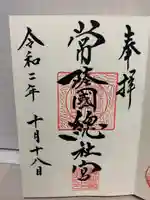 奉拝
常陸國總社宮
令和二年
十月十八日